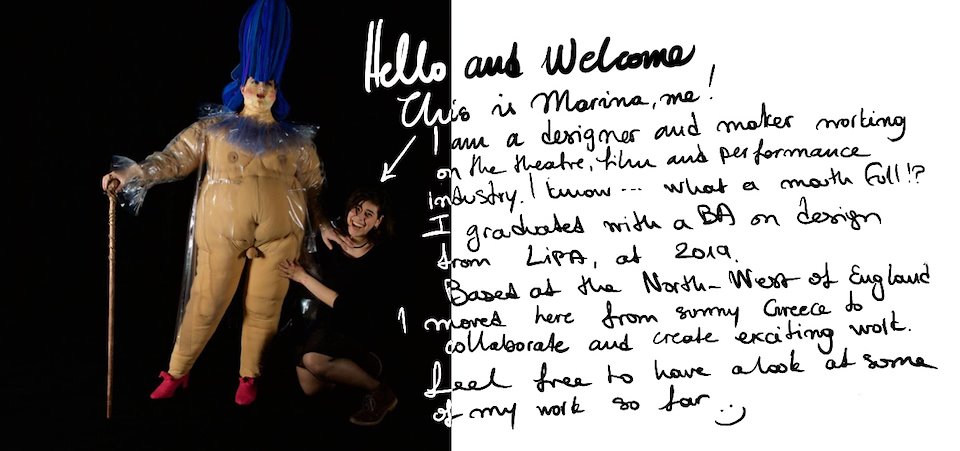 Hello and Welcome
This is Marina, me!
I am a designer and maker working
on the theatre, film and performance
industry. I know... what a mouth full!?
I graduated with a BA on design
from LiPA, at 2019.
Based at the North-West of England
I moved here from sunny Greece to
collaborate and create exciting work.
feel free to have a look at some
of my work so far.. :)